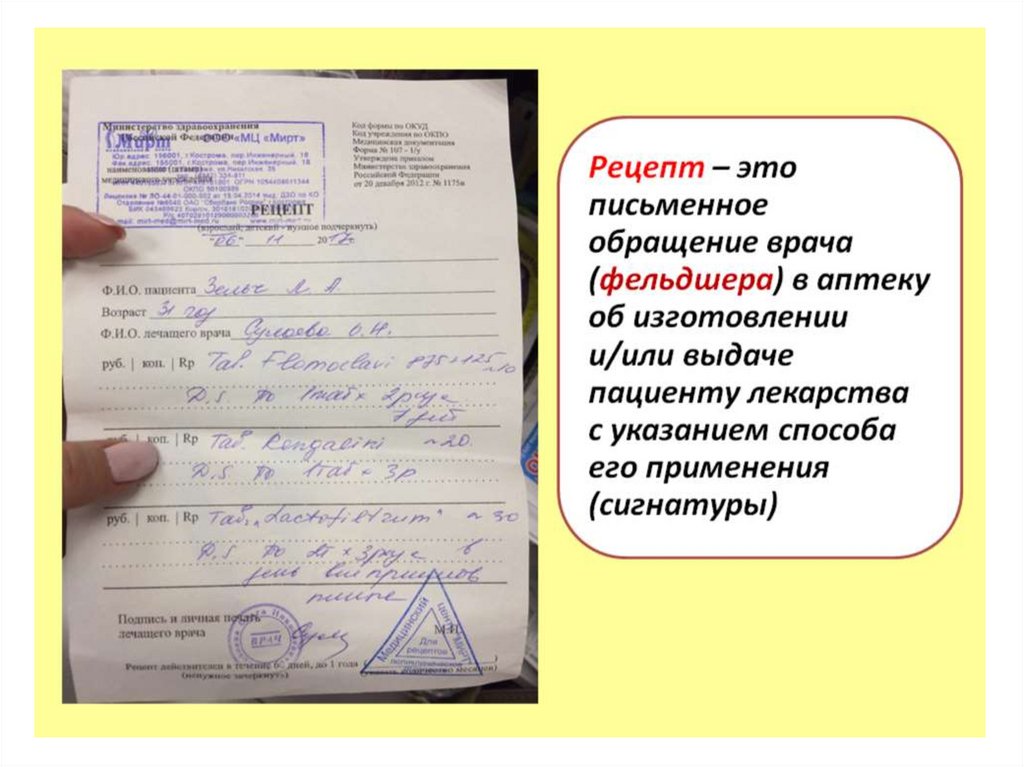 Министерство здравоохранения
Российской Федерации
Мирт ООО «МЦ «Мирт»
Юр адрес 156001, г Кострома, пер Инженерный, 18
Факт адрес 156001, г Кострома, пер Инженерный, 18
наименование (штамп)
медицинского учреждения
Код формы по ОКУД
Код учреждения по ОКПО
Медицинская документация
Форма № 107 - 1/у
Утверждена приказом
Министерства здравоохранения
Российской Федерации
от 20 декабря 2012 г. № 1175н
РЕЦЕПТ
(взрослый, детский - нужное подчеркнуть)
"06" 11 2017г.
Ф.И.О. пациента Зельч Л. А.
Возраст 31 год
Ф.И.О. лечащего врача О. Н.
руб. | коп. | Rp Tab. Flemoclavi 875+125
D.S. по 1 таб x 2 раза
7 дней
руб. | коп. | Rp Tab. Rengalini № 20
D.S. по 1 таб x 3 р
руб. | коп. | Rp Tab. „Lactofiltrum" № 30
D.S. по 2т x 3 раза в
день вне приемов
пищи
Подпись и личная печать
лечащего врача
ВРАЧ
М.П.
Медицинский центр "Мирт"
Для рецептов
Рецепт действителен в течение 60 дней, до 1 года (
(ненужное зачеркнуть)
количество месяцев)
Рецепт – это
письменное
обращение врача
(фельдшера) в аптеку
об изготовлении
и/или выдаче
пациенту лекарства
с указанием способа
его применения
(сигнатуры)